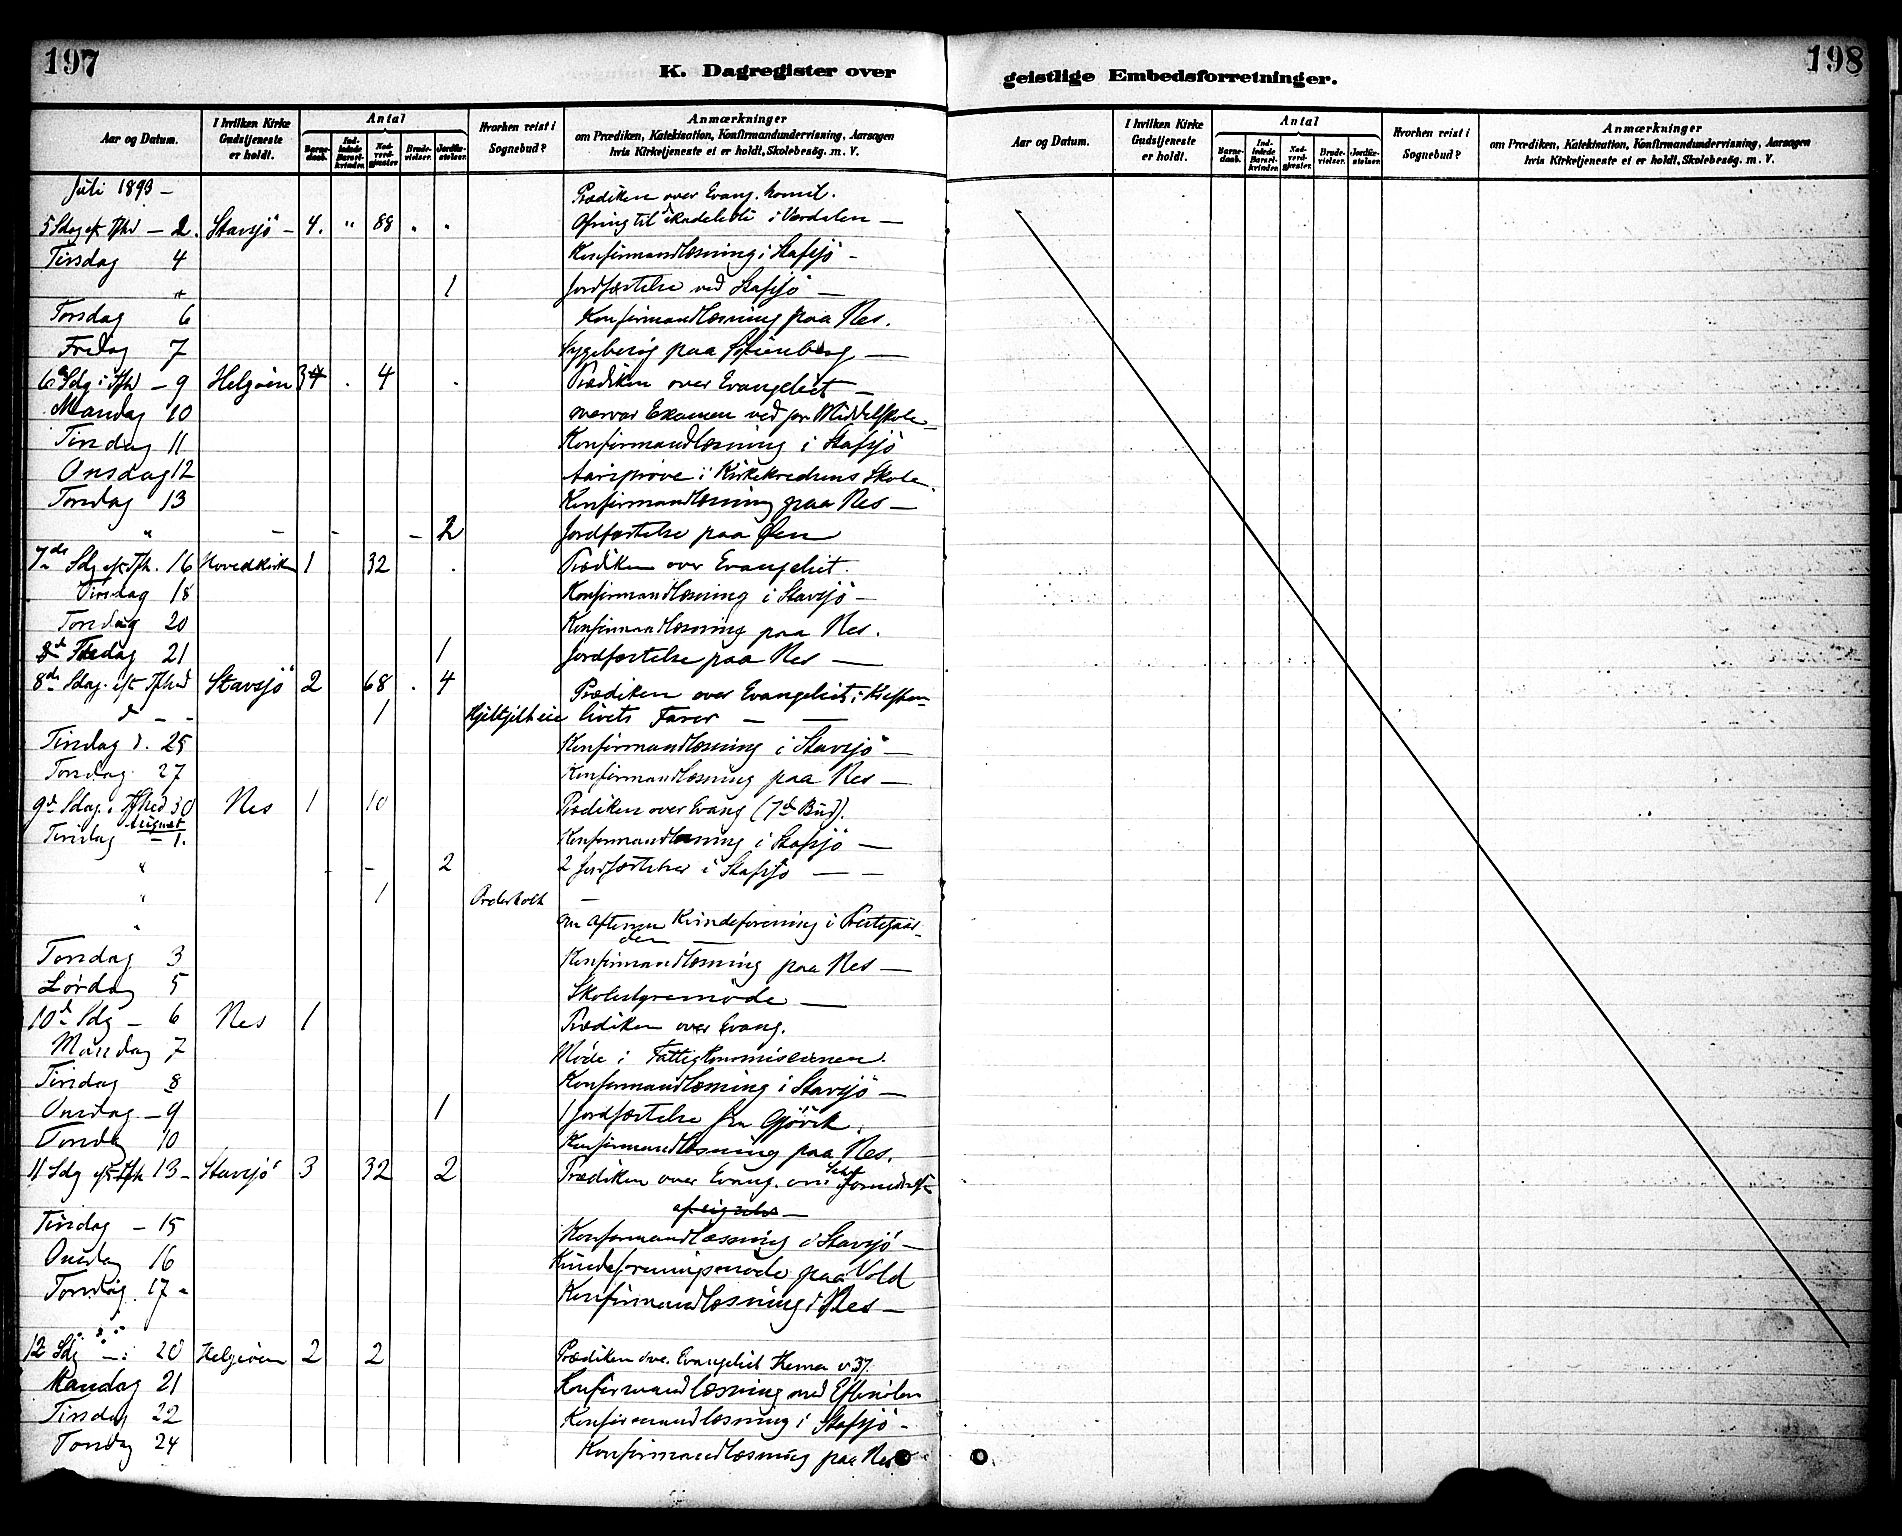 197
K. Dagregister over
geistlige Embedsforretninger.
198
Aar og Datum.
I hvilken Kirke Gudstjeneste er holdt.
Antal
Barnedaab.
Indledede Barselkvinder.
Nadverdgjester
Brudevielser.
Jordfæstelser.
Hvorhen reist i Sognebud?
Anmærkninger
om Prædiken, Katekisation, Konfirmandundervisning, Aarsagen
hvis Kirketjeneste ei er holdt, Skolebesög. m. V.
Aar og Datum.
I hvilken Kirke Gudstjeneste er holdt.
Antal
Barnedaab.
Indledede Barselkvinder.
Nadverdgjester.
Brudevielser.
Jordfæstelser.
Hvorhen reist i Sognebud?
Anmærkninger
om Prædiken, Katekisation, Konfirmandundervisning, Aarsagen
hvis Kirketjeneste ei er holdt, Skolebesög. m. V.
Juli 1893 — Prædiken over Evang.
5 Sdag – 2. Stavsjö – 4. " 88 . . Ofring til i Værdalen —
Tirsdag 4 Konfirmandlæsning i Stafsjö –
" 1 Jordfæstelse ved Stafsjö —
Torsdag 6 Konfirmandlæsning paa Nes.
Fredag 7 Sygebesög paa —
6 Sdg – 9 Helgöen 4 . Prædiken over Evangeliet —
Mandag 10 overvar Examen ved Middelskole
Tirsdag 11 Konfirmandlæsning i Stafsjö
Onsdag 12 Aarsprøve i Kirkekredsens Skole.
Torsdag 13 Konfirmandlæsning paa Nes —
" – – – 2 Jordfæstelse paa Øen
7de Sdg eft. Tfh. 16 Hovedkirken 1 32 . Prædiken over Evangeliet.
Tirsdag 18 Konfirmandlæsning i Stavsjö —
Torsdag 20 Konfirmandlæsning paa Nes.
21 1 Jordfæstelse paa Nes —
8de Sdag. eft Stavsjö 2 68 . 4 Prædiken over Evangeliet:
1 livets Farer — —
Tirsdag d. 25 Konfirmandlæsning i Stavsjö —
Torsdag 27 Konfirmandlæsning paa Nes —
9de Sdag. 30 Nes 1 10 Prædiken over Evang (7de Bud).
August
Tirsdag – 1. Konfirmandlæsning i Stafsjö —
" – 2 2 Jordfæstelser i Stafsjö — —
" 1 —
" Kvindeforening i Prestegaarden —
Torsdag 3 Konfirmandlæsning paa Nes —
Lördag 5 Skolestyremöde —
10de Sdg – 6 Nes 1 Prædiken over Evang.
Mandag 7 Möde i Fattigkommissionen.
Tirsdag 8 Konfirmandlæsning i Stavsjö —
Onsdag – 9 1 1 Jordfæstelse fra Gjövik.
Torsdg 10 Konfirmandlæsning paa Nes.
11 Sdg eft 13 – Stavsjö 3 32 2 Prædiken over Evang. om
Tirsdag – 15 Konfirmandlæsning i Stavsjö —
Onsdag 16 Kvindeforeningsmöde paa Vold
Torsdag 17 – Konfirmandlæsning i Nes —
12 Sdg – 20 Helgöen 2 2 Prædiken Evangeliet
Mandag 21 Konfirmandlæsning med
Tirsdag 22 Konfirmandlæsning i Stafsjö –
Torsdag 24 Konfirmandlæsning paa Nes